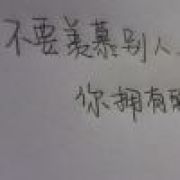 不要羡慕别人
你拥有